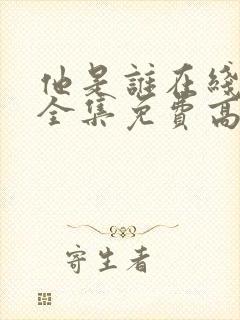 他是誰在綫
全集免費高
寄生者